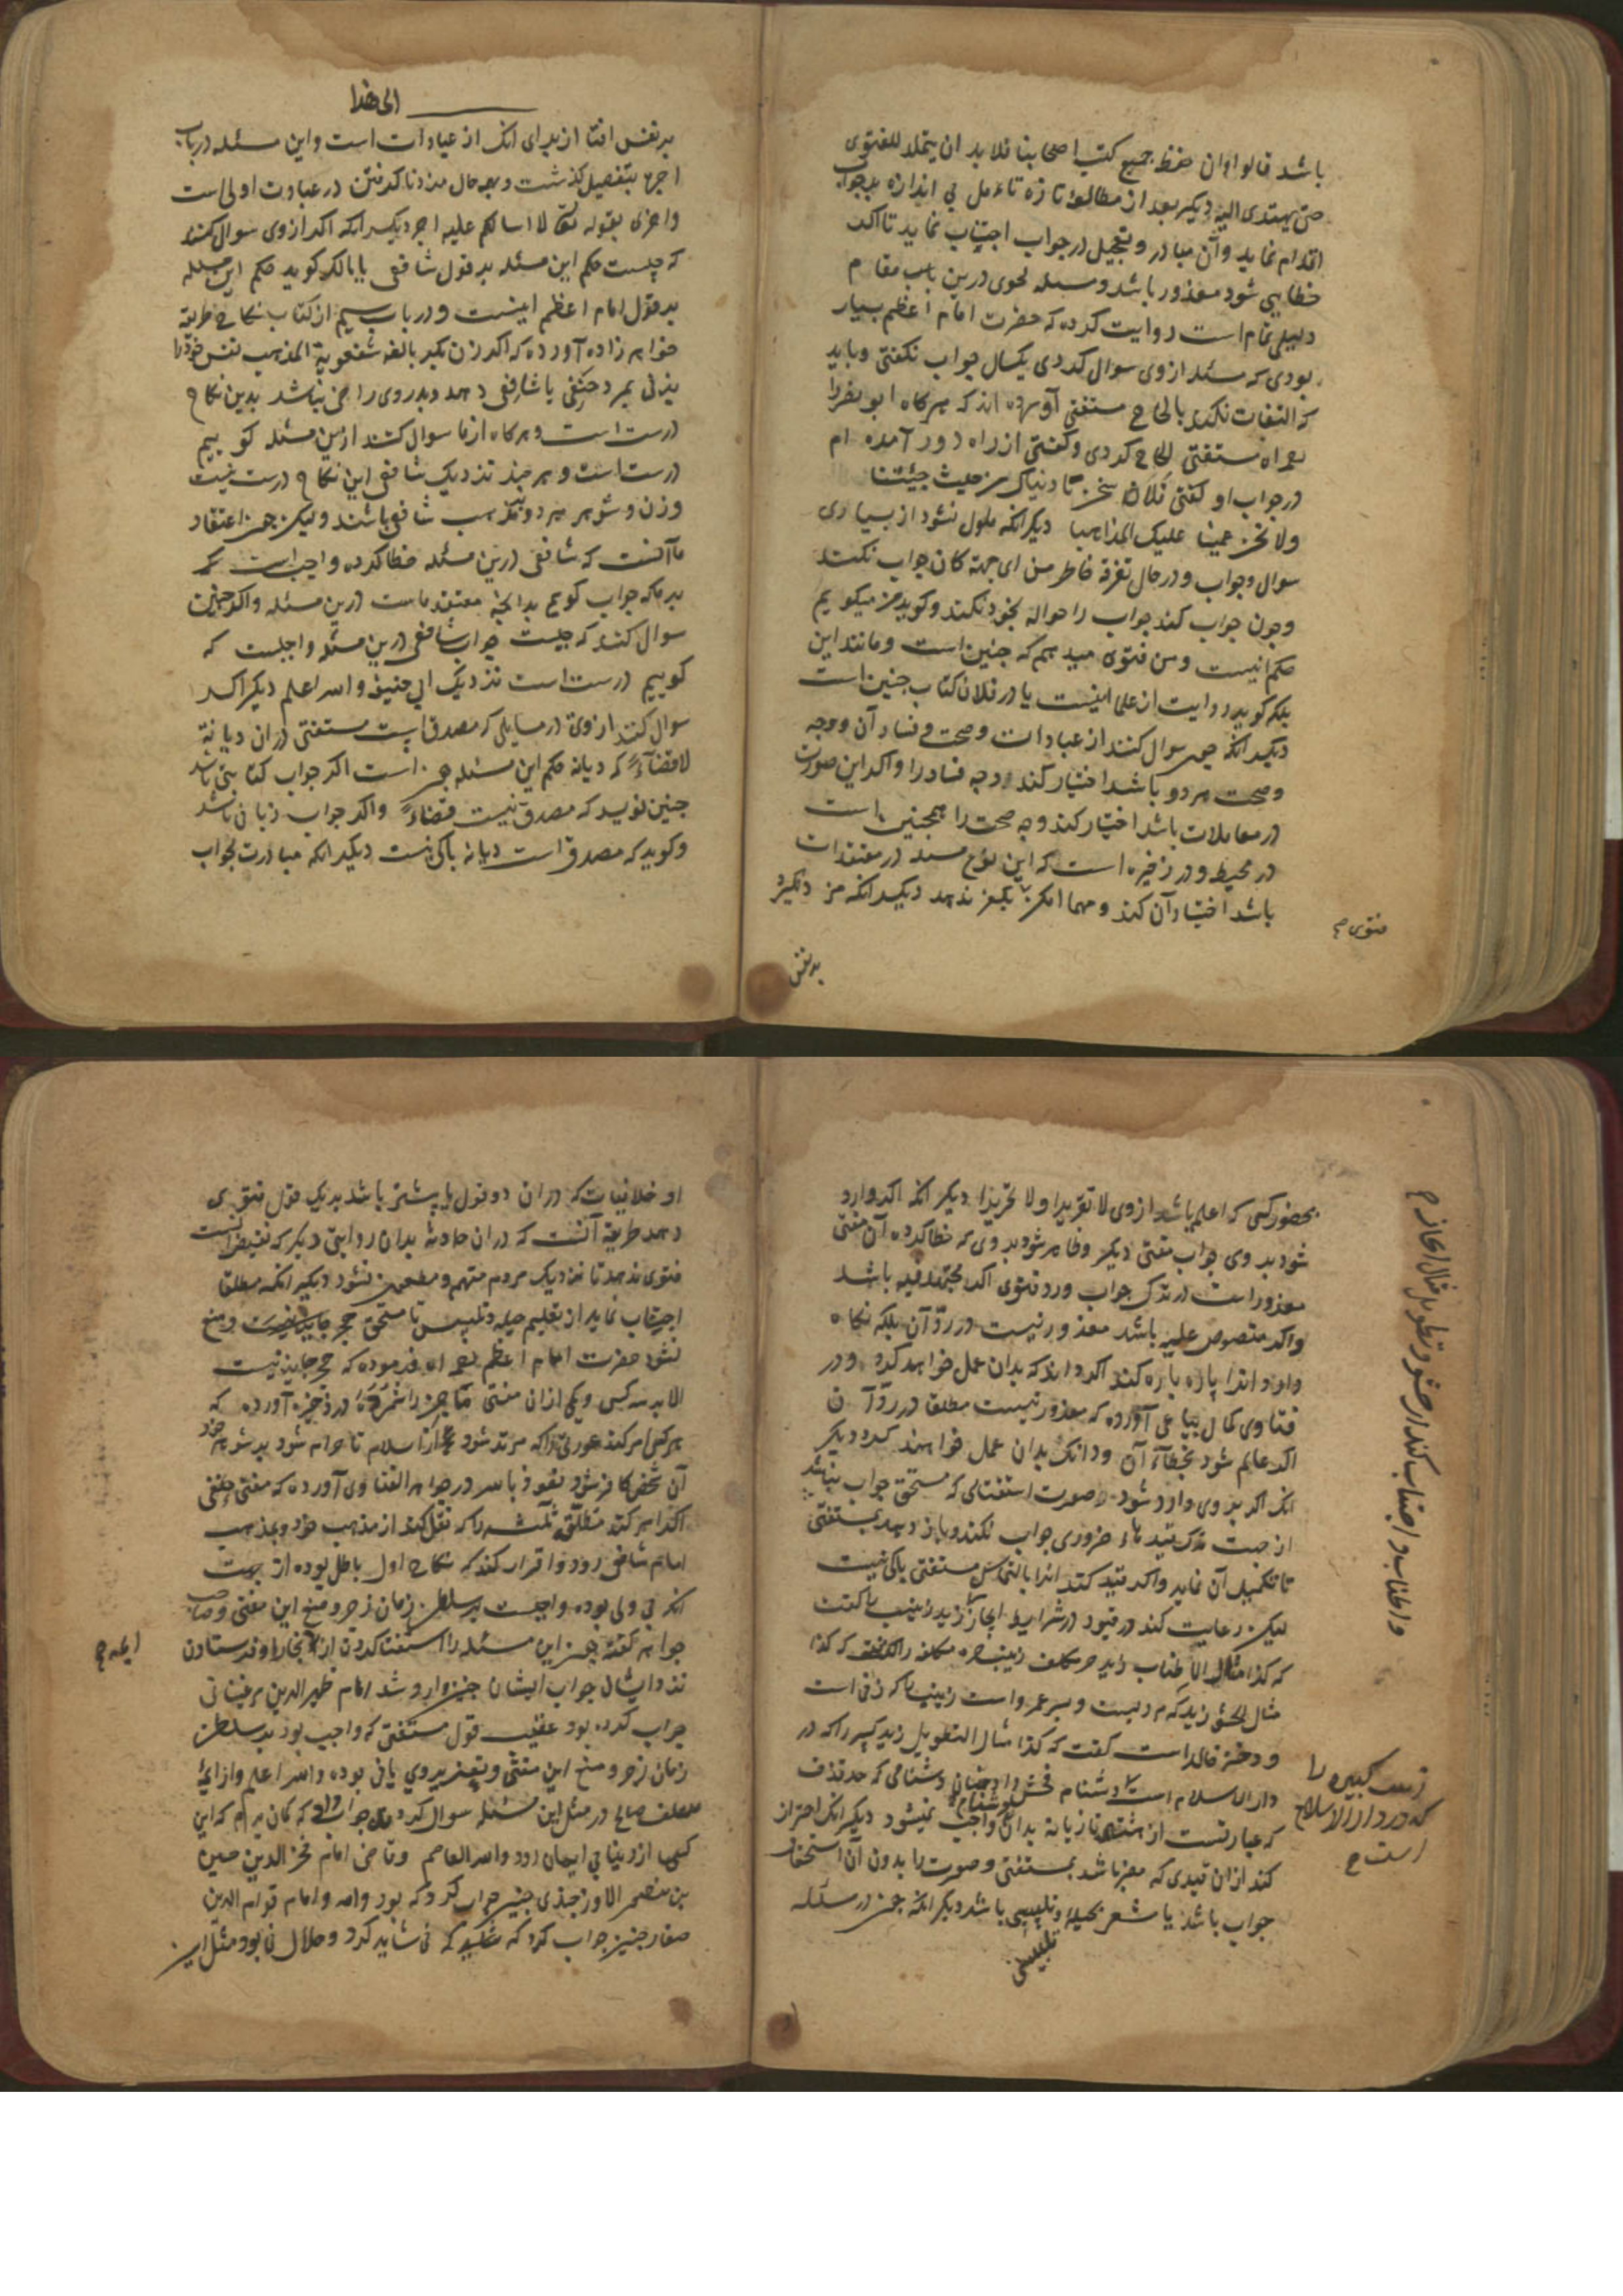 باشد قالوا وان حفظ جمیع کتب اصحابنا فلا بد ان یتلمذ للفتوی
حتی یهتدی الیه دیگر بعد از مطالعه تازه تامل بی اندازه بر جواب
اقدام نماید وآن مبادر وتعجیل در جواب اجتناب نماید تا اگر
خطایی شود معذور باشد و درین باب مقام
دلیلی تمام است روایت کرده که حضرت امام اعظم بسیار
بودی که مسئله از وی سوال کردی یکسال جواب نکفتی وباید
که التفات نکند بالحاح مستفتی آورده اند که هرکاه ابو نصر را
مستفتی الحاح کردی وکفتی از راه دور آمده ام
در جواب او کفتی فلا نحن نادیناک من حیث جئتنا
ولا نحن عمینا علیک المذاهبا دیکر انکه ملول نشود از بسیاری
سوال وجواب ودر حال تفرقه خاطر من ای جهة کان جواب نکند
وچون جواب کند جواب را حواله بخود نکند وکوید من میکویم
حکم اینست ومن فتوی میدهم که چنین است ومانند این
بلکه کوید روایت از علما اینست یا در فلان کتاب چنین است
دیکر انکه چون سوال کنند از عبادات وصحت وفساد آن ووجه
وصحت هر دو باشد اختیار کند وجه فساد را واکر این صورت
در معاملات باشد اختیار کند وجه صحت را همچنین است
در محیط ودر ذخیره است که این نوع در معتقدات
باشد اختیار آن کند ومهما امکن تکفیر ندهد دیکر انکه مزد نکیرد
فتوی صح
بر نفس
الی هذا
بر نفس افتا از برای انک از عبادات است واین مسئله در باب
اجره بتفصیل کذشت وبهر حال مزد ناکرفتن در عبادت اولی است
واحری بقوله تعالی لا اسالکم علیه اجر دیکر انکه اکر از وی سوال کنند
که چیست حکم این مسئله بر قول شافعی یا مالک کوید حکم این مسئله
بر قول امام اعظم اینست ودر باب سیم از کتاب نکاح
خواهر زاده آورده که اکر زن بکر بالغه شفعویة المذهب نفس خود را
بزنی بمرد حنفی یا شافعی دهد وپدر وی راضی نباشد بدین نکاح
درست است وهرکاه از ما سوال کنند ازین مسئله کوییم
درست است وهر چند نزدیک شافعی این نکاح درست نیست
وزن وشوهر هر دو بمذهب شافعی باشند ولیکن چون اعتقاد
ما آنست که شافعی درین مسئله خطا کرده واجب است
بر ما که جواب کوییم بدانچه معتقد ماست درین مسئله واکر چنین
سوال کنند که چیست جواب شافعی درین مسئله واجبست که
کوییم درست است نزدیک ابی حنیفه والله اعلم دیکر اکر
سوال کنند از وی در مسایلی که مصدق است مستفتی دران دیانة
لا قضاءً که دیانة حکم این مسئله چیست اکر جواب کتابتی باشد
چنین نویسد که مصدق نیست قضاءً واکر جواب زبانی باشد
وکوید که مصدق است دیانة باکی نیست دیکر انکه مبادرت بجواب
بحضور کسی که اعلم باشد از وی لا تقریرا ولا تحریرا دیکر انکه اکر وارد
شود بر وی جواب مفتی دیکر وظاهر شود بر وی که خطا کرده آن مفتی
معذور است در ترک جواب ورد فتوی اکر مجتهد فیه باشد
واکر منصوص علیه باشد معذور نیست در رد آن بلکه نکاه
دارد وانرا پاره پاره کند اکر داند که بدان عمل خواهد کرد ودر
فتاوی کمال بیاعی آورده که معذور نیست مطلقا در رد آن
اکر عالم شود بخطآء آن وداند که بدان عمل خواهند کرد دیکر
انک اکر بر وی وارد شود صورت استفتائی که مستحق جواب نباشد
از جهت ترک قیدهاء ضروری جواب نکند وباز دهد بمستفتی
تا تکمیل آن نماید واکر قید کند انرا بالتماس مستفتی باکی نیست
لیکن رعایت کند در قیود وشرایط ایجاز را زید زینب را کفت
که کذا مثال الاطناب زید حر مکلف زینب حره مکلفه را کفت که کذا
مثال الحشو زید که مردیست وپسر عمرو است زینب را که زنی است
ودختر خالد است کفت که کذا مثال التطویل زید کبیر را که در
دار الاسلام است دشنام فحش داد چنان دشنامی که حد قذف
که عبارتست از هشتاد تازیانه بدان واجب نمیشود دیکر انک احتراز
کند ازان قیدی که مغیر باشد بمستفتی وصورت را بدون آن استحقاق
جواب باشد یا مشعر بحیله وتلبیسی باشد دیکر انکه چون در مسئله
تلبیسی
واطناب واجتناب کند از حشو وتطویل مثال ایجاز صح
زینب کبیره را
که در دار الاسلام
است صح
او خلافیات که دران دو قول یا بیشتر باشد بر یک قول فتوی
دهد طریقه آنست که دران حادثه بدان روایتی دیکر که نقیض آنست
فتوی ندهد تا نزدیک مردم متهم ومطعون نشود دیکر انکه مطلقا
اجتناب نماید از تعلیم حیله وتلبیس تا مستحق حجر ومنع
نشود حضرت امام اعظم فرموده که حجر جایز نیست
الا بر سه کس ویکی ازان مفتی ماجن را شمرده در ذخیره آورده که
هرکس امر کند عورتی را که مرتد شود از اسلام تا حرام شود بر شوهر خود
آن شخص کافر شود نعوذ بالله ودر جواهر الفتاوی آورده که مفتی حنفی
اکر امر کند مطلق ثلثه را که نقل کند از مذهب خود وبمذهب
امام شافعی رود واقرار کند که نکاح اول باطل بوده از جهت
انکه بی ولی بوده واجبست بر سلطان زمان زجر ومنع این مفتی وصاحب
جواهر کفته چون این مسئله را استفتا کردن از ایمه بخارا وفرستادن
نزد ایشان جواب ایشان چنین وارد شد امام ظهیر الدین مرغینانی
جواب کرده بود عقیب قول مستفتی که واجب بود بر سلطان
زمان زجر ومنع این مفتی وتعزیر وی یا نی بوده والله اعلم واز ایمه
در مثل این مسئله سوال کرد جواب داد که کمان برم که این
کس از دنیا بی ایمان رود والله العاصم وقاضی امام فخر الدین حسن
بن منصور الاوزجندی چنین جواب کرد که بود والله وامام قوام الدین
صفار چنین جواب کرد که نی شاید کرد وحلال نی بود ومثل این
ایمه صح